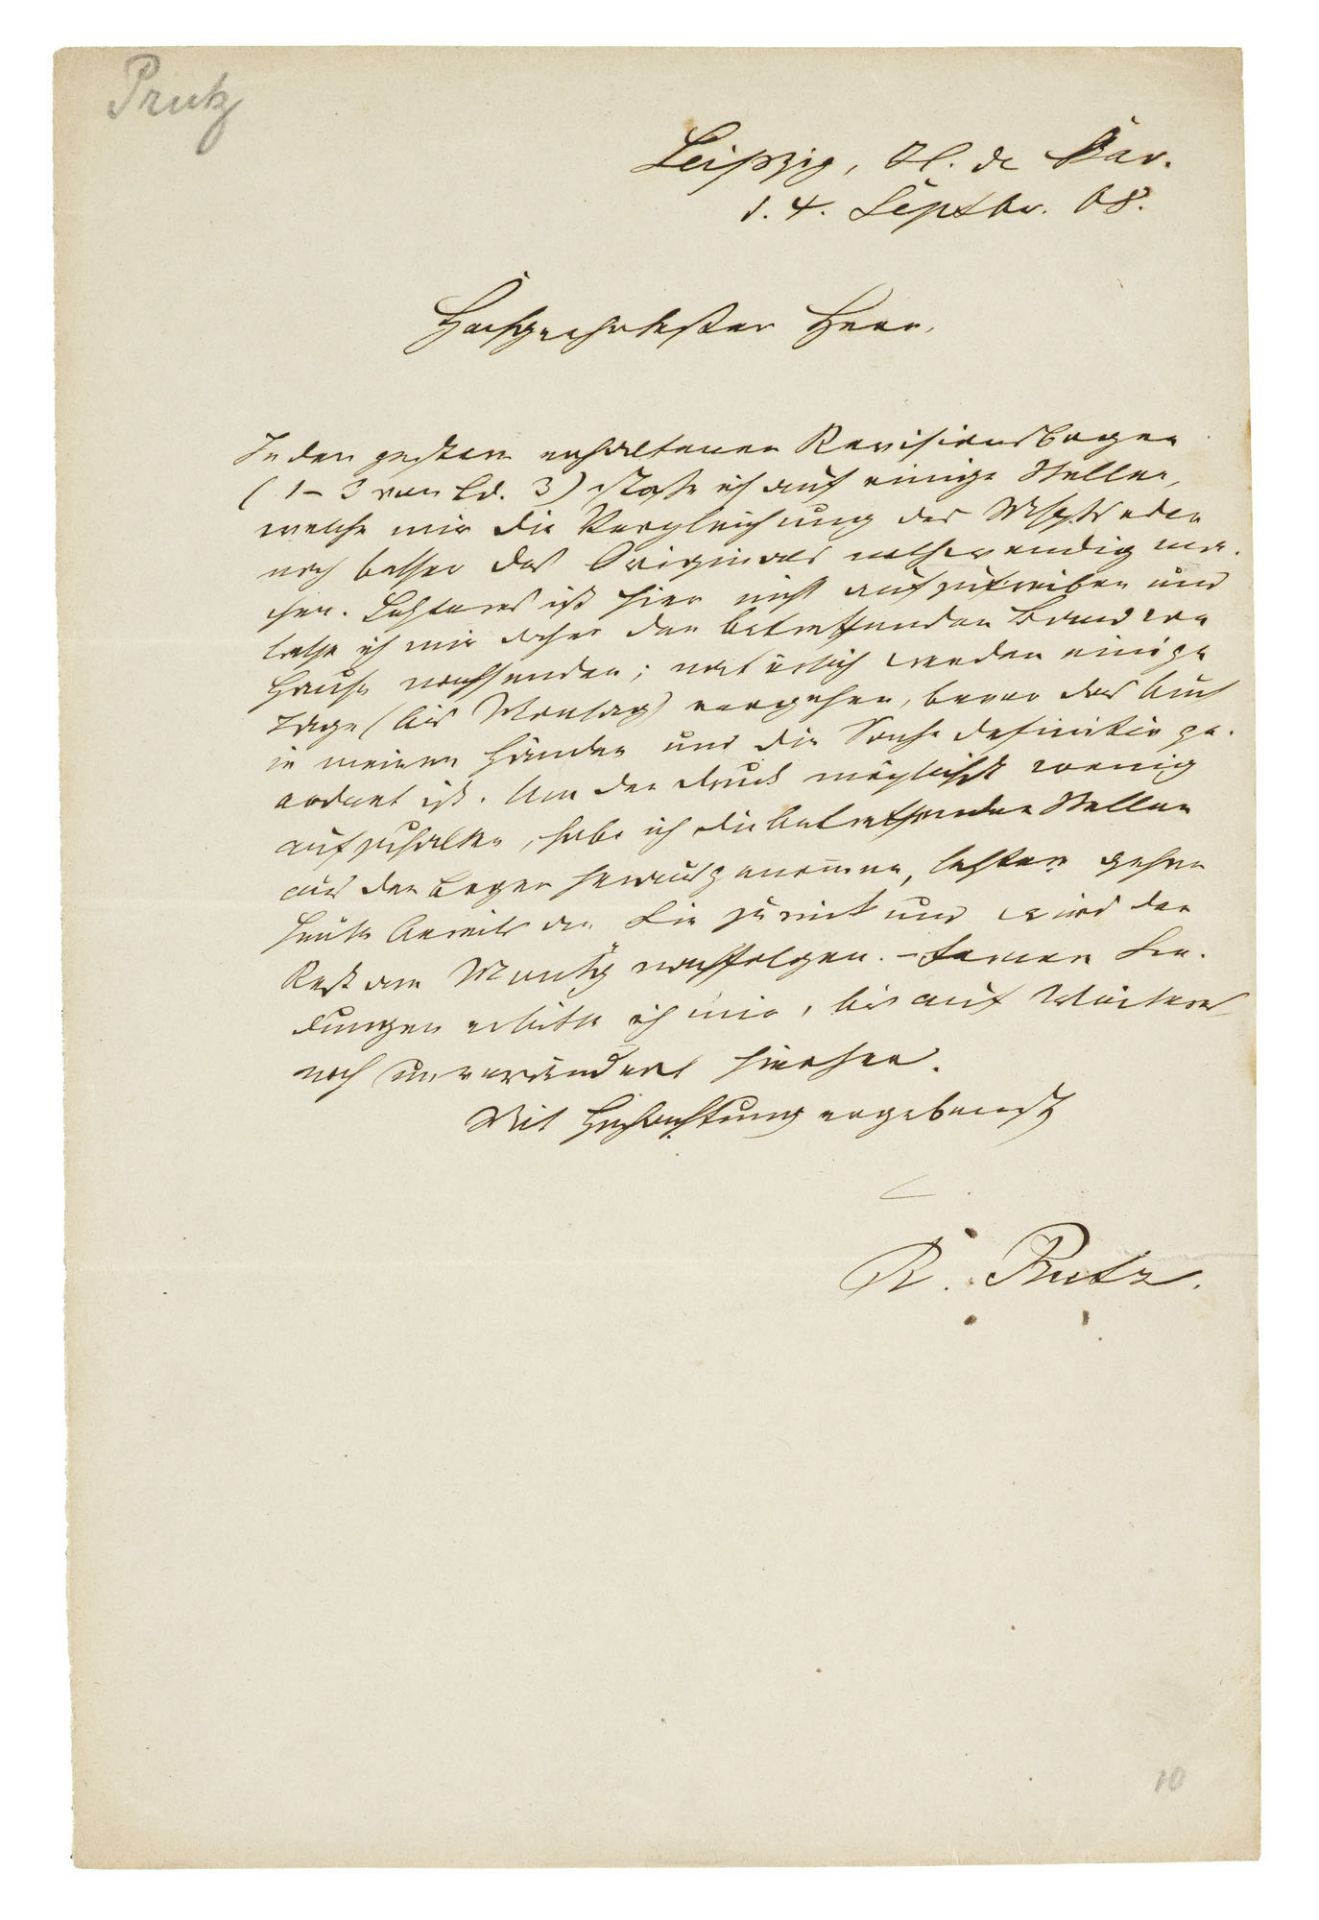 Prutz
Leipzig, H. de Bav.
d. 4. Septbr. 68.
Hochgeehrtester Herr,
In den gestern erhaltenen Revisionsbogen
(1–3 von Bd. 3) stoße ich auf einige Stellen,
welche mir die Vergleichung des Mscpts oder
noch besser des Originals nothwendig ma-
chen. Letzteres ist hier nicht aufzutreiben und
lasse ich mir daher den betreffenden Band von
Hause nachsenden; natürlich werden einige
Tage (bis Montag) vergehen, bevor das Buch
in meinen Händen und die Sache definitiv ge-
ordnet ist. Um den Druck möglichst wenig
aufzuhalten, habe ich die betreffenden Stellen
aus den Bogen herausgenommen, letztere gehen
heute bereits an Sie zurück und wird der
Rest am Montag nachfolgen. – Fernere Sen-
dungen erbitte ich mir, bis auf Weiteres
noch unverändert hierher.
Mit Hochachtung ergebenst
R. Prutz.
10